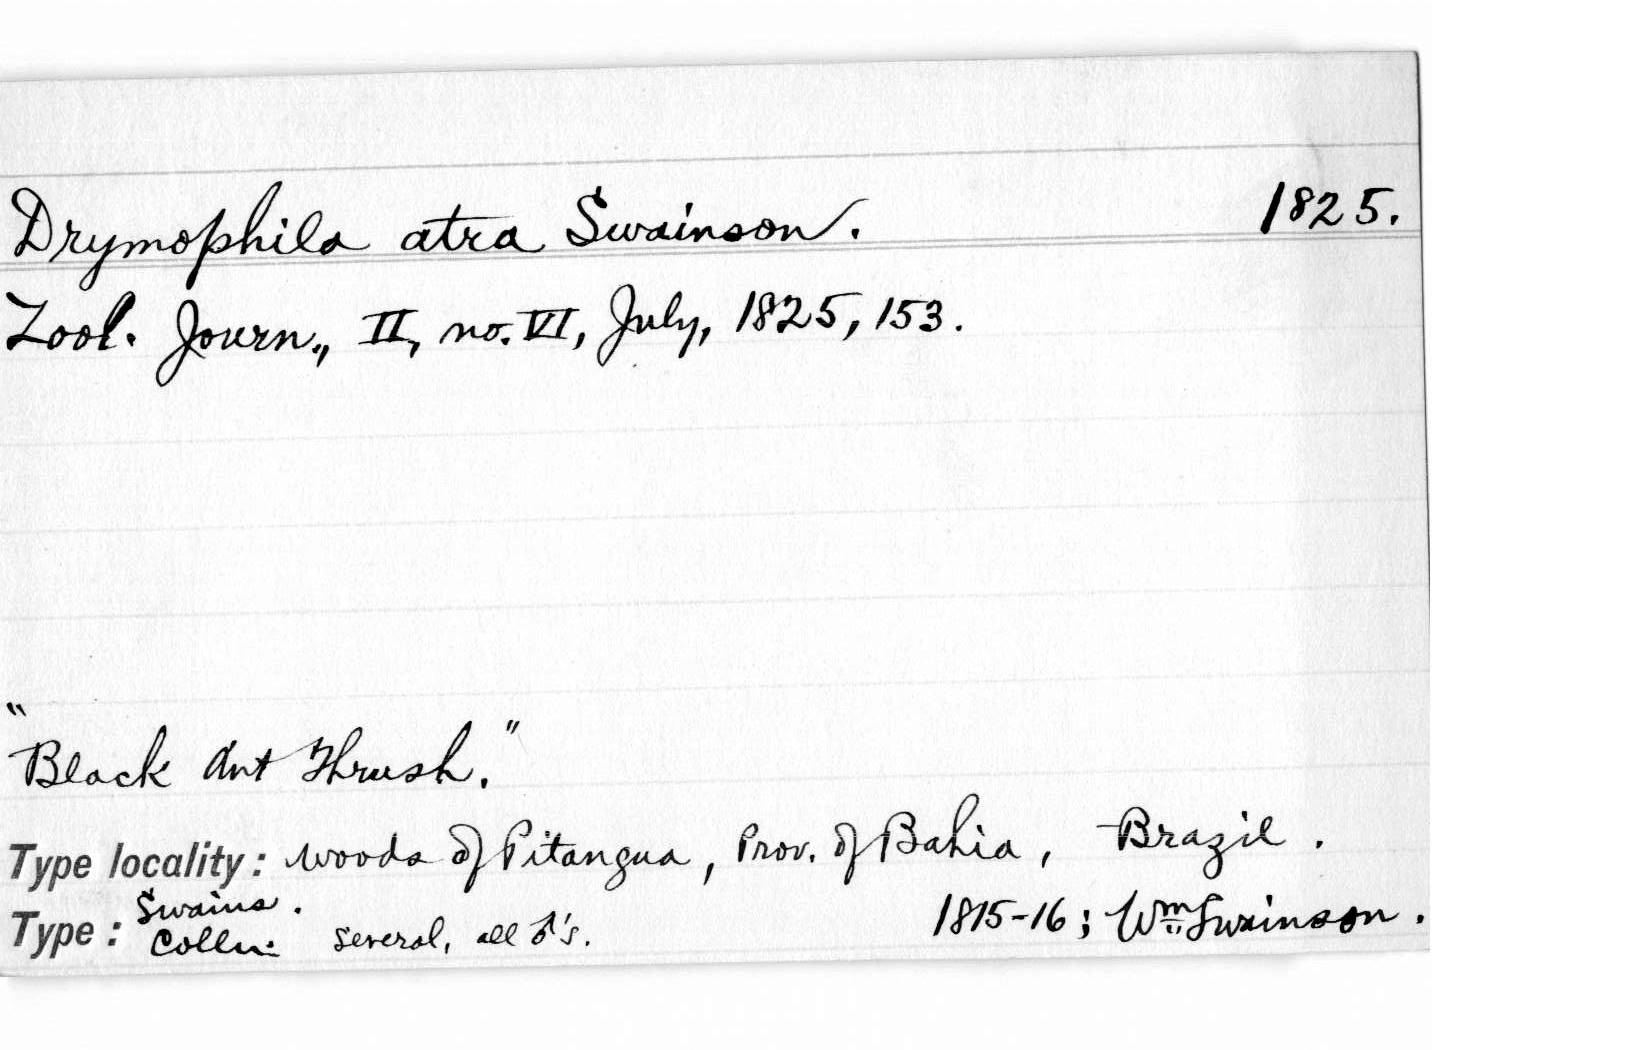 Drymophila atra Swainson. 1825.
Zool. Journ., II, no. VI, July, 1825, 153.
"Black Ant Thrush."
Type locality: woods of Pitangua, Prov. of Bahia, Brazil.
Type: Swains. Colln: several, all ♂'s. 1815-16; Wm Swainson.